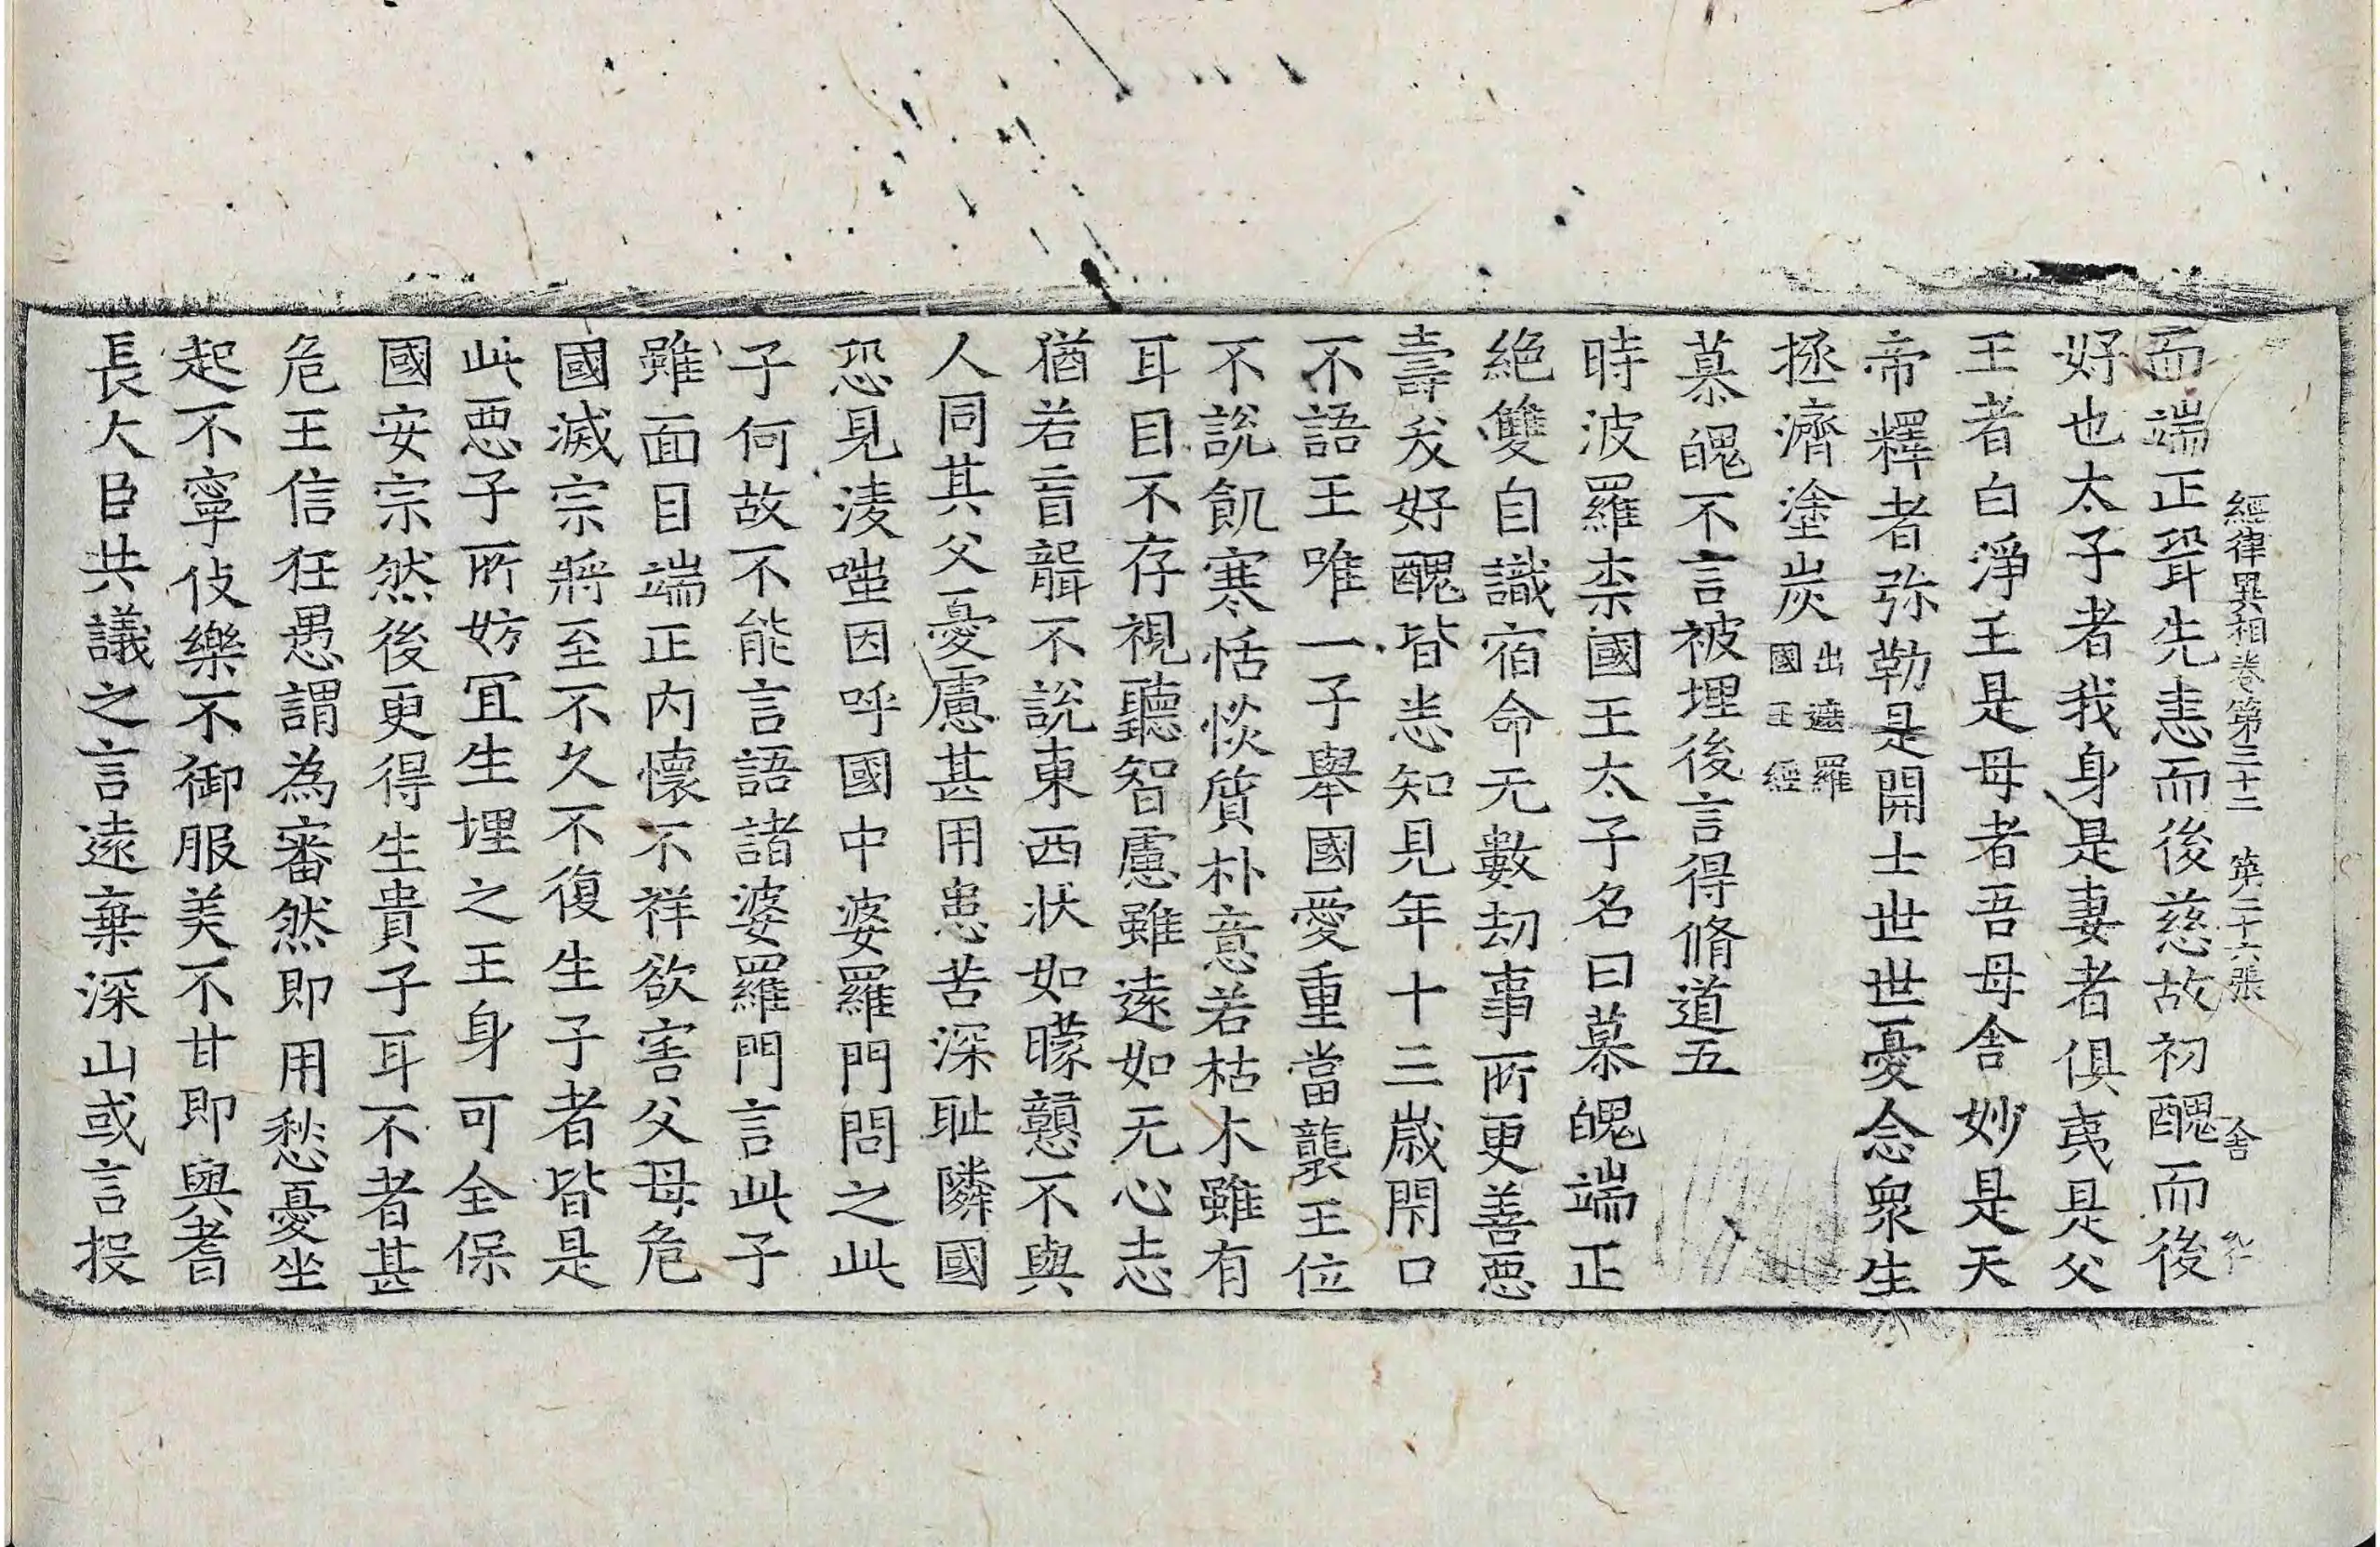 經律異相卷第三十二　第二十六張　舍
而端正聳先恚而後慈故初醜而後
好也太子者我身是妻者俱夷是父
王者白淨王是母者吾母舍妙是天
帝釋者弥勒是開士世世憂念衆生
拯濟塗炭出遮羅國王經
慕魄不言被埋後言得脩道五
時波羅柰國王太子名曰慕魄端正
絶雙自識宿命无數劫事所更善惡
壽夭好醜皆悉知見年十三歲閇口
不語王唯一子舉國愛重當襲王位
不說飢寒恬惔質朴意若枯木雖有
耳目不存視聽智慮雖遠如无心志
猶若盲聾不說東西狀如矇戇不與
人同其父憂慮甚用患苦深耻隣國
恐見淩嗤因呼國中婆羅門問之此
子何故不能言語諸婆羅門言此子
雖面目端正內懷不祥欲害父母危
國滅宗將至不久不復生子者皆是
此惡子所妨冝生埋之王身可全保
國安宗然後更得生貴子耳不者甚
危王信狂愚謂為審然即用愁憂坐
起不寧伎樂不御服美不甘即與耆
長大臣共議之言遠棄深山或言投